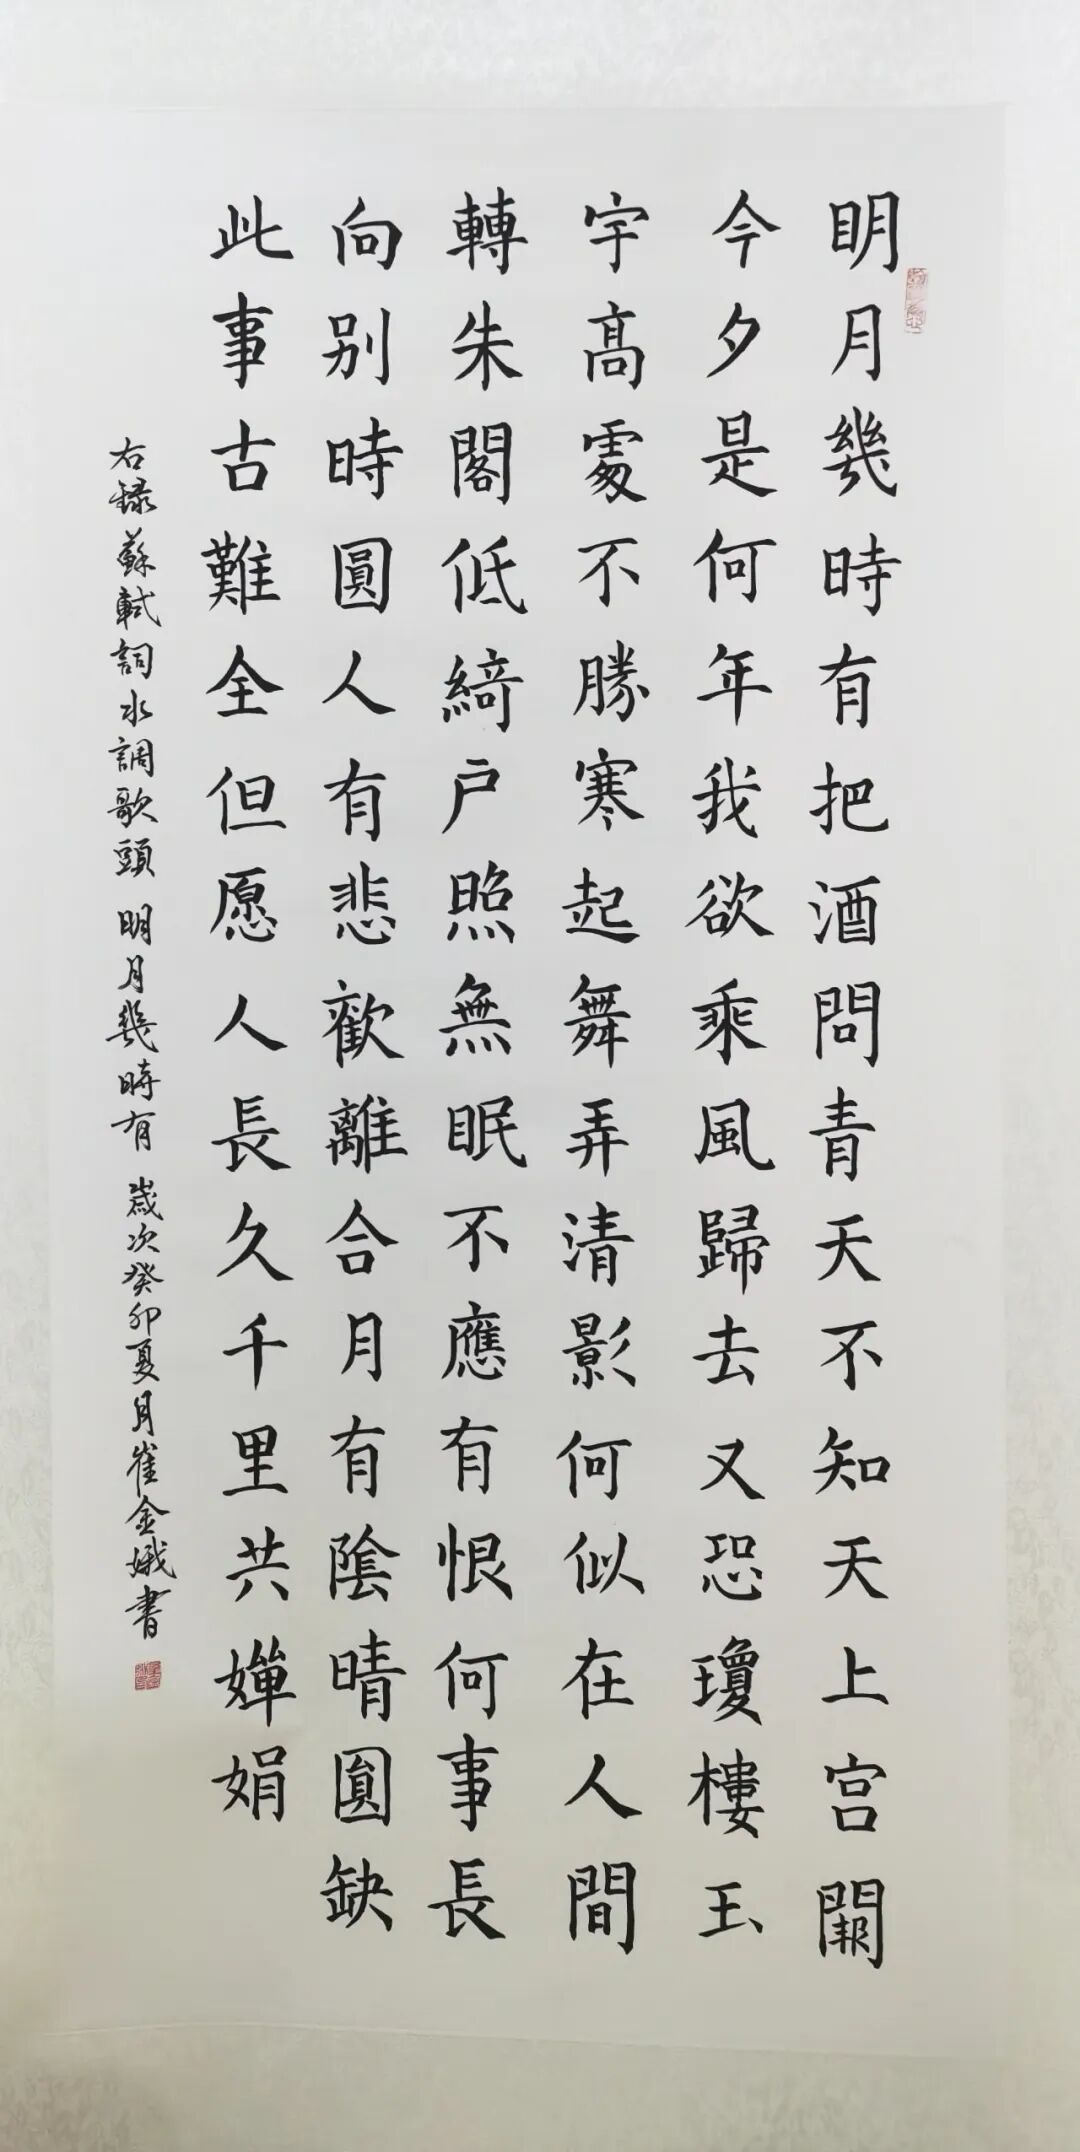 明月幾時有把酒問青天不知天上宫闕
今夕是何年我欲乘風歸去又恐瓊樓玉
宇髙處不勝寒起舞弄清影何似在人間
轉朱閣低綺户照無眠不應有恨何事長
向别時圓人有悲歡離合月有陰晴圓缺
此事古難全但愿人長久千里共嬋娟
右録蘇軾詞水調歌頭 明月幾時有 歲次癸卯夏月崔金娥書